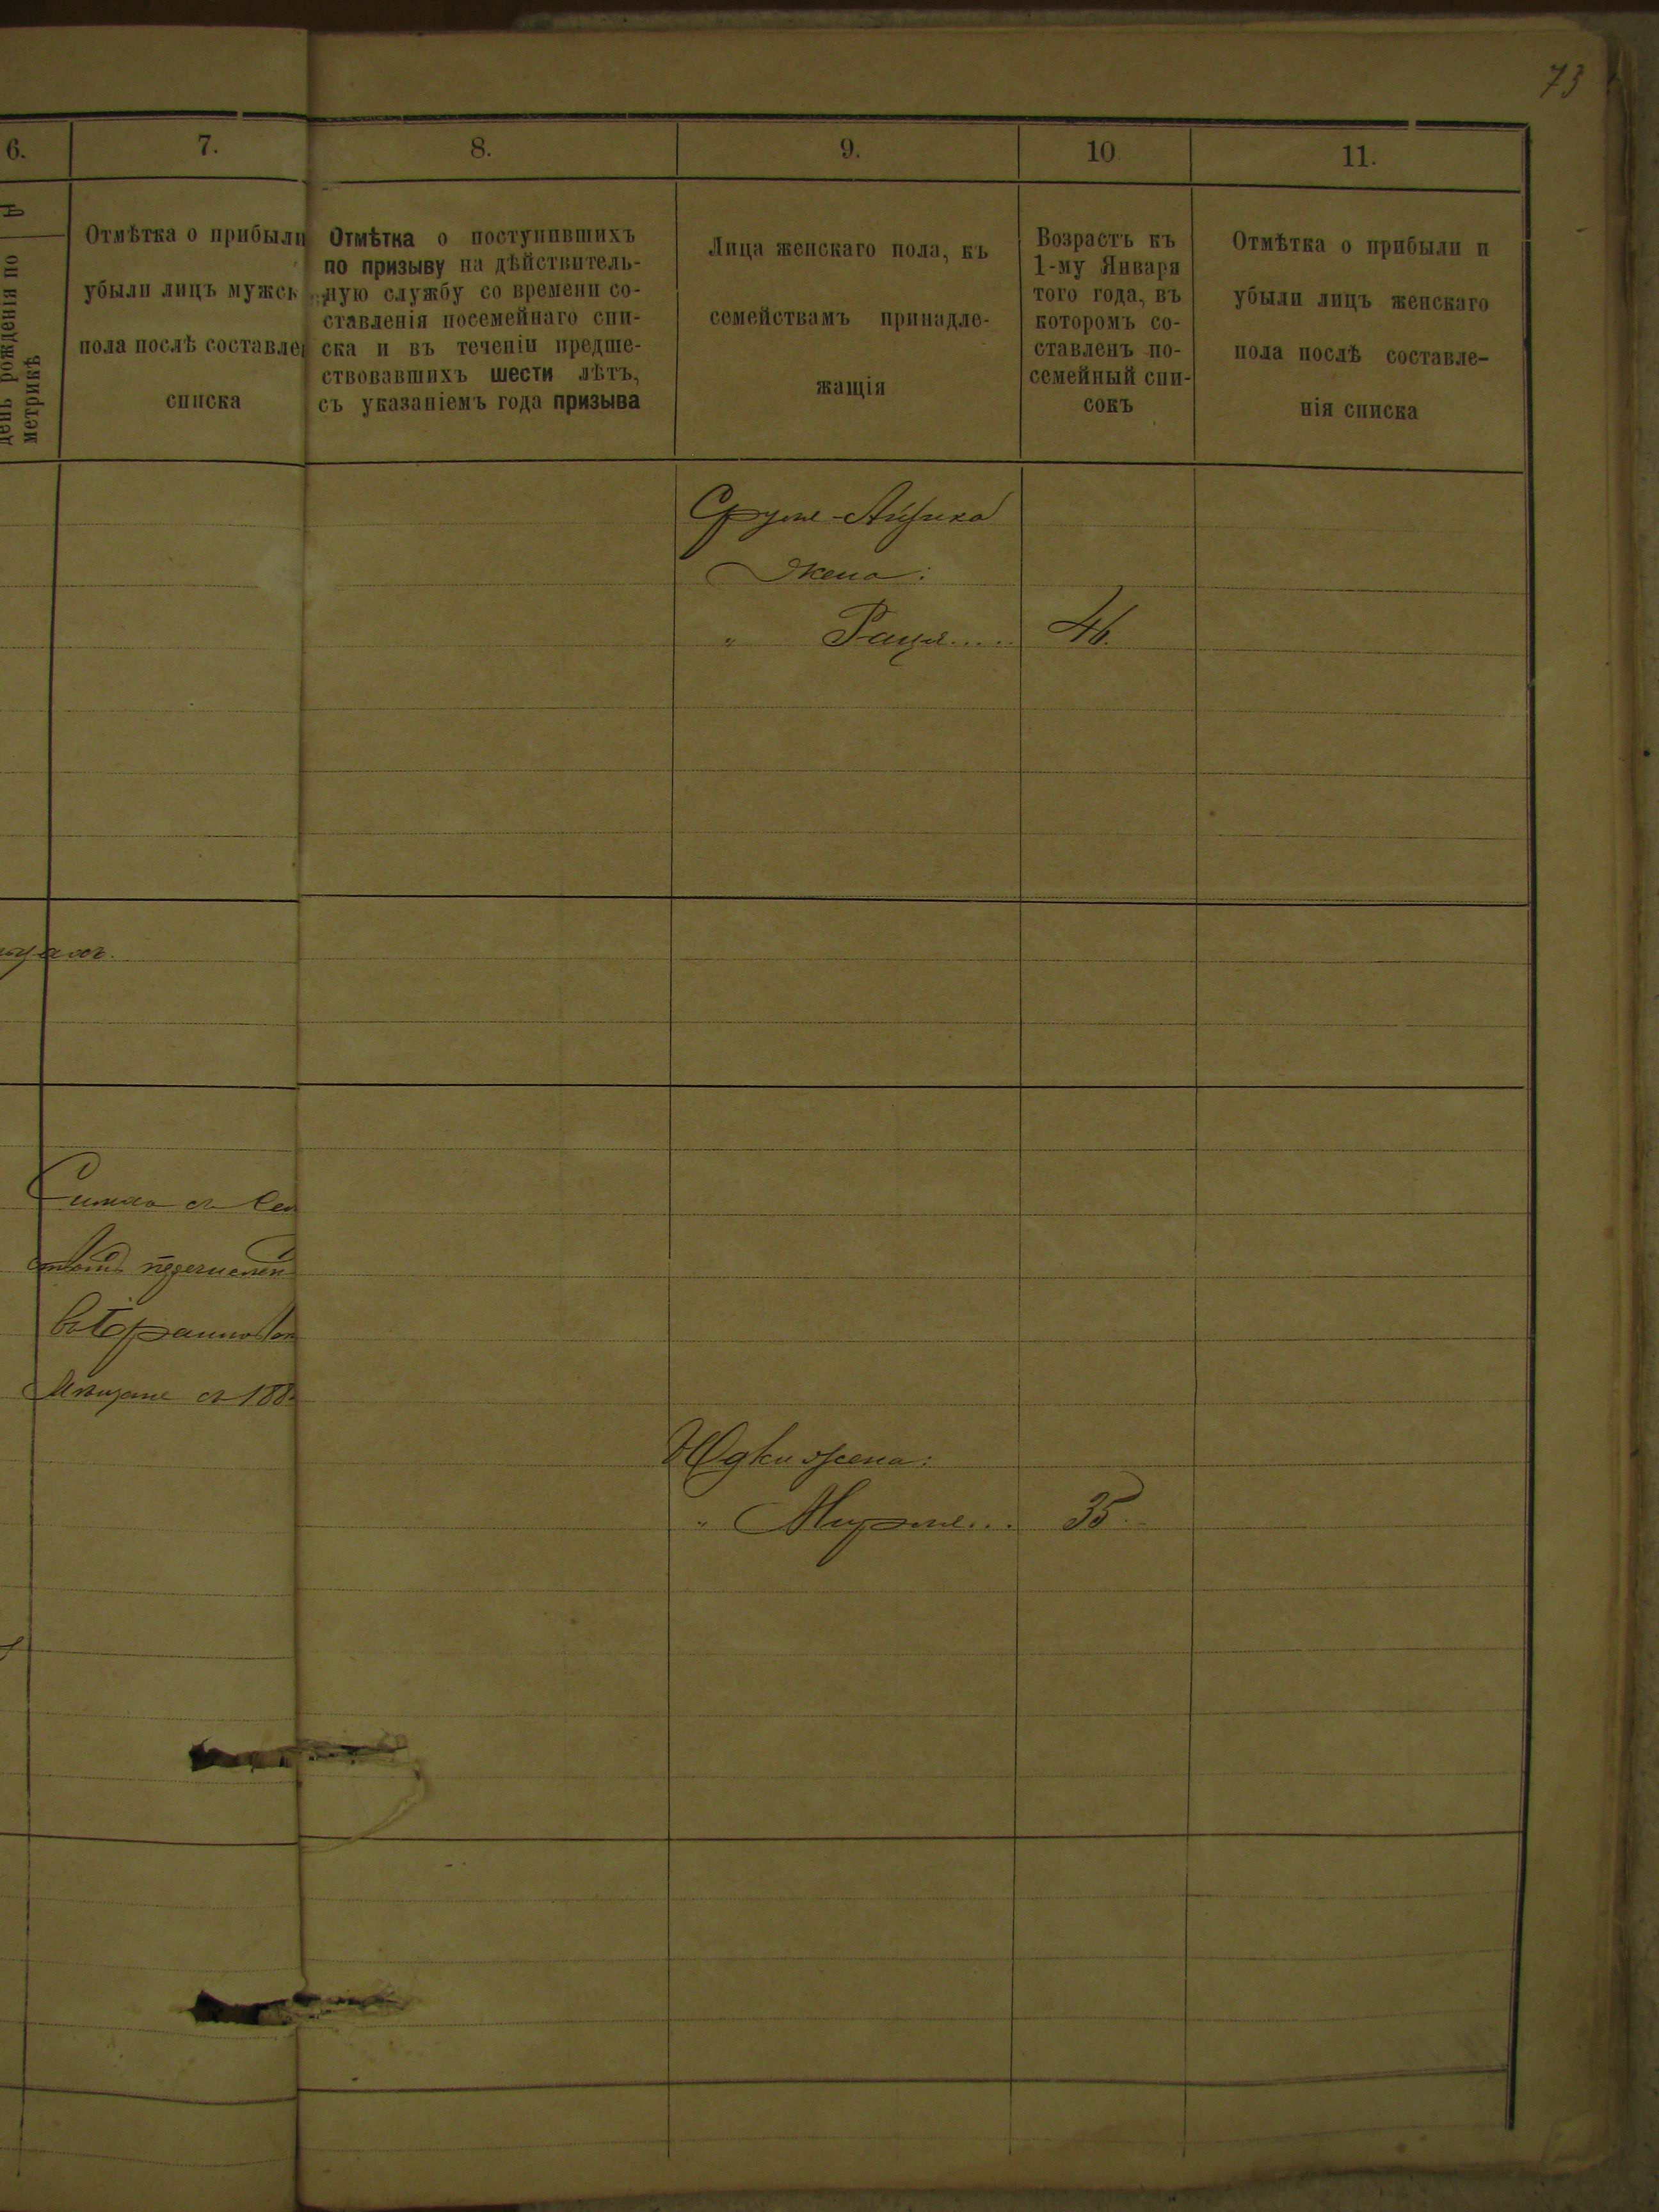 73
6.
7.
8.
9.
10
11.
день рожденія по
метрикѣ
Отмѣтка о прибыли
убыли лицъ мужск
пола послѣ составле
списка
Отмѣтка о поступившихъ
по призыву на дѣйствитель-
ную службу со времени со-
ставленія посемейнаго спи-
ска и въ теченіи предше-
ствовавшихъ шести лѣтъ,
съ указаніемъ года призыва
Лица женскаго пола, къ
семействамъ принадле-
жащія
Возрастъ къ
1-му Января
того года, въ
которомъ со-
ставленъ по-
семейный спи-
сокъ
Отмѣтка о прибыли и
убыли лицъ женскаго
пола послѣ составле-
нія списка
Сруля-Айзика
Жена:
" Рация..... 46.
Симха съ Сем
перечислен
Мѣщане съ 188
Юдки жена:
" Мирля... 35.